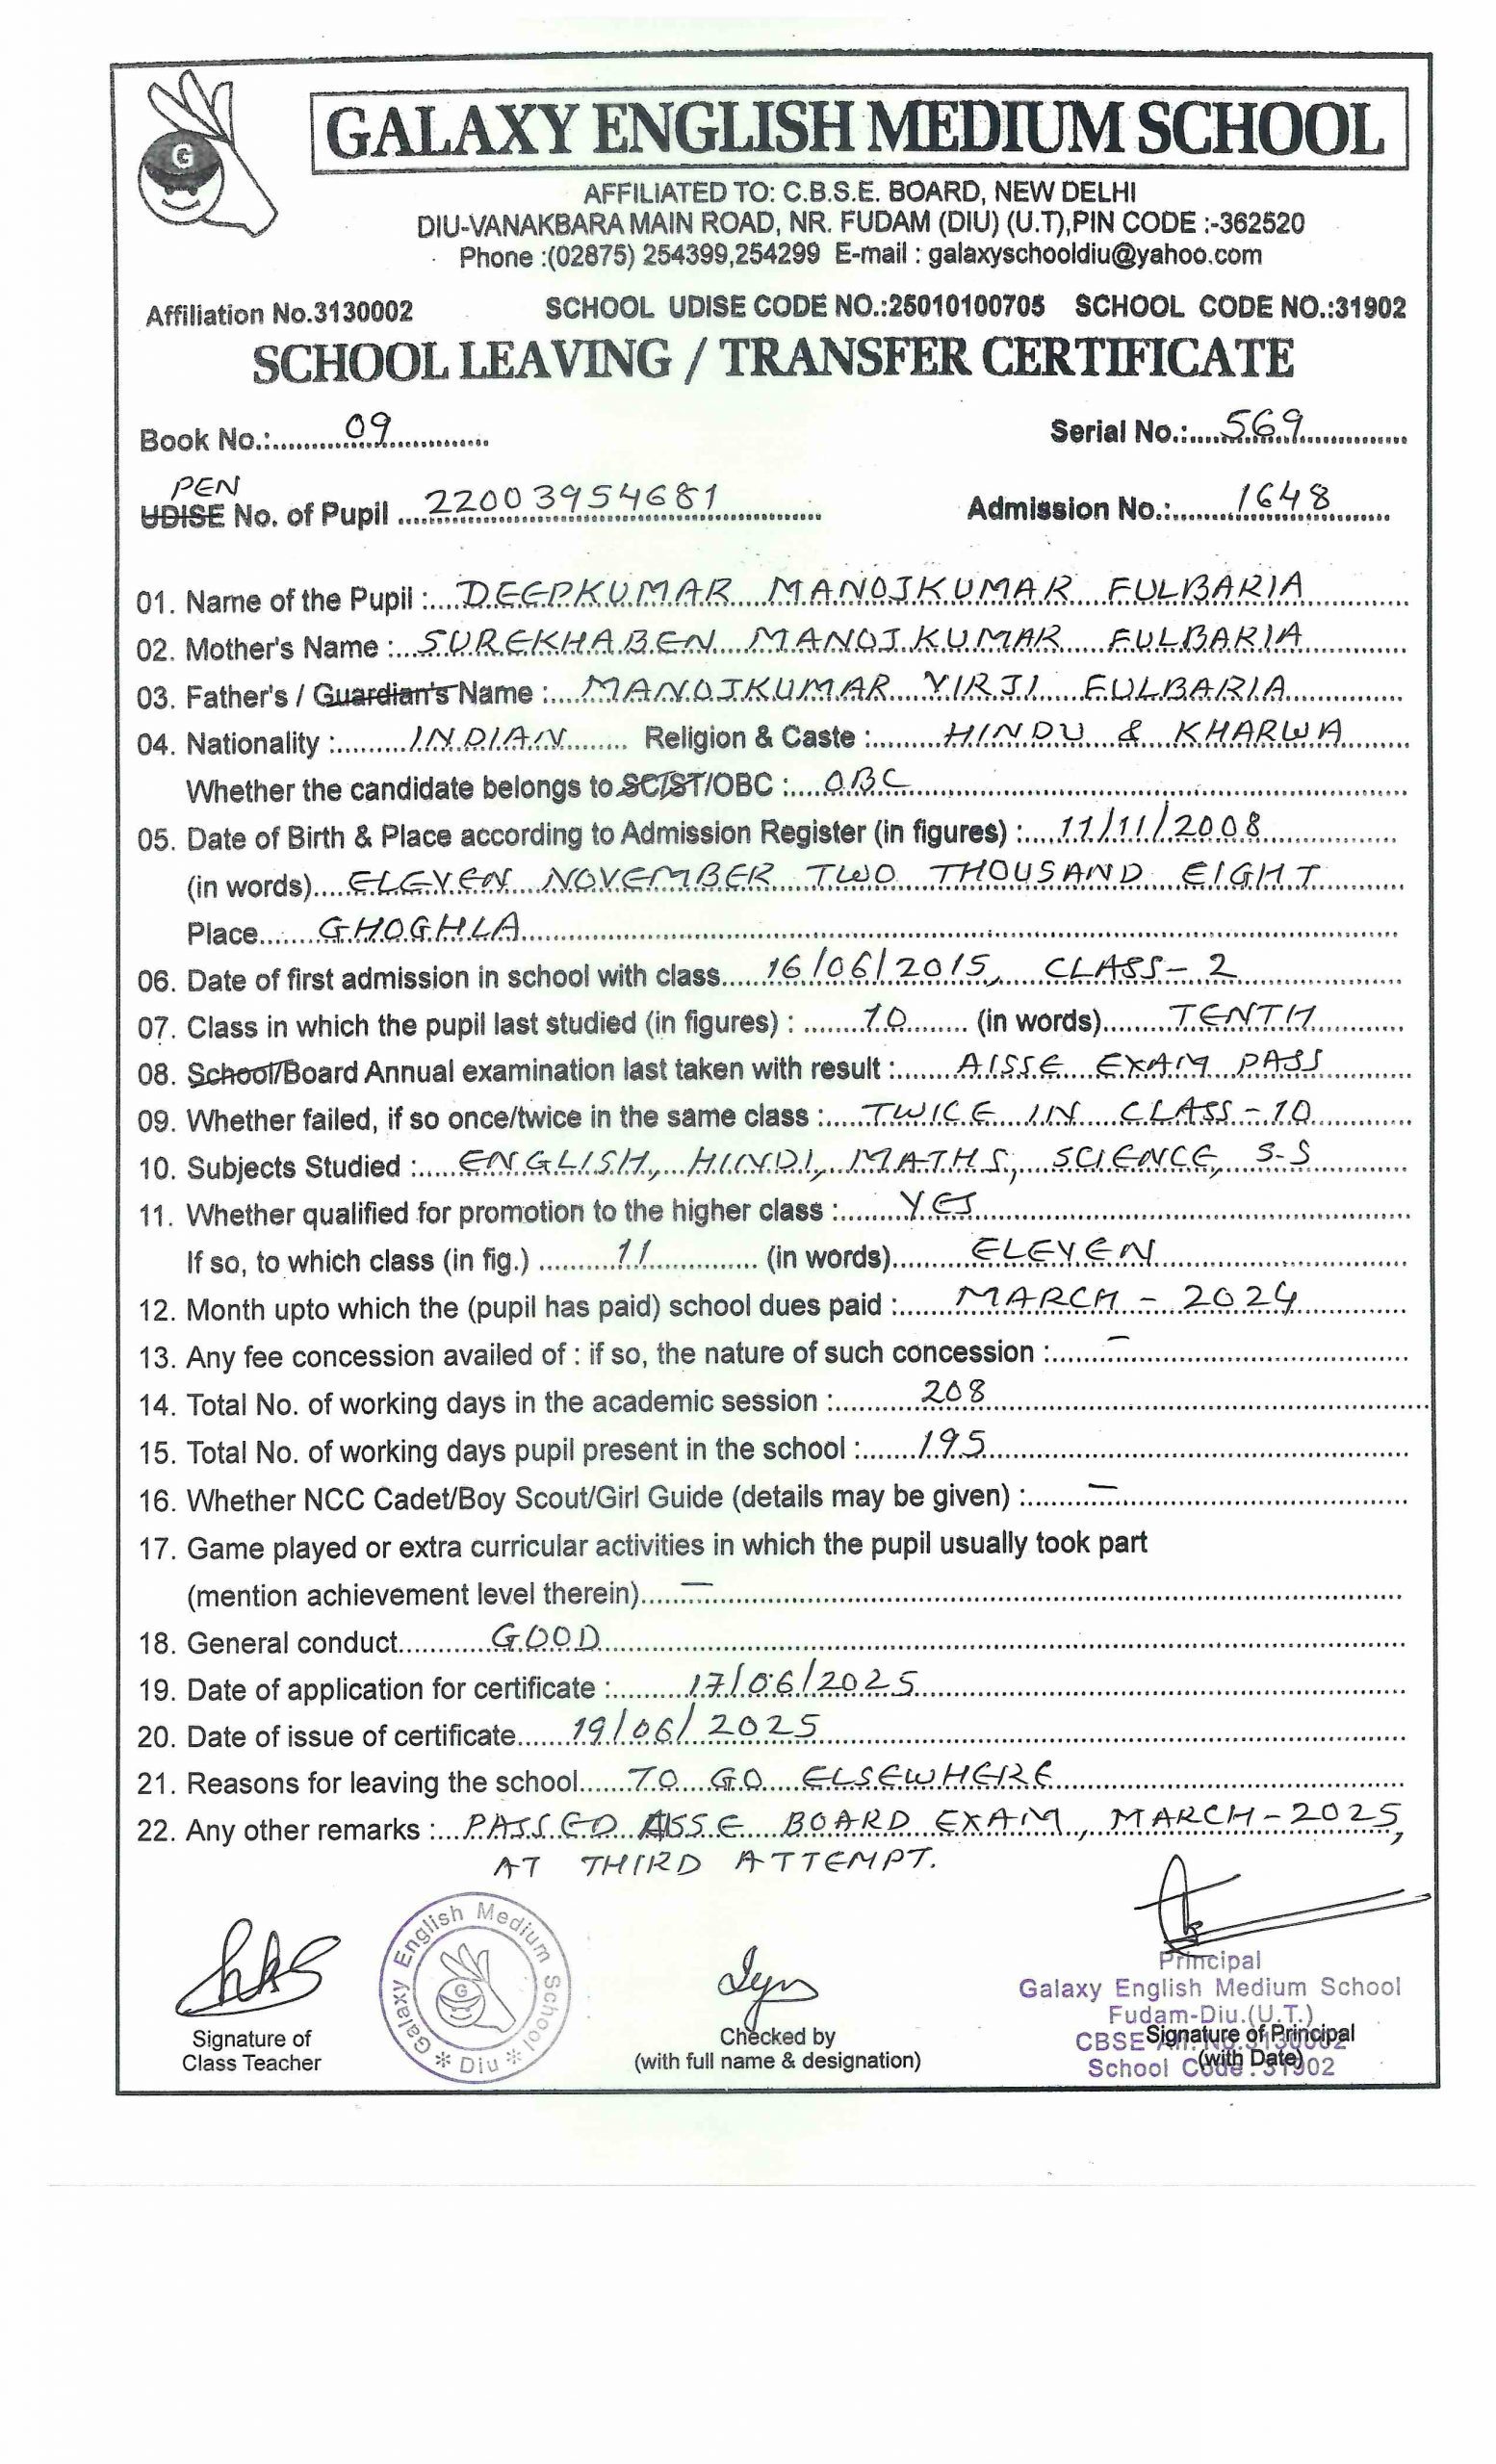 GALAXY ENGLISH MEDIUM SCHOOL
AFFILIATED TO: C.B.S.E. BOARD, NEW DELHI
DIU-VANAKBARA MAIN ROAD, NR. FUDAM (DIU) (U.T),PIN CODE :-362520
Phone :(02875) 254399,254299 E-mail : galaxyschooldiu@yahoo.com
Affiliation No.3130002 SCHOOL UDISE CODE NO.:25010100705 SCHOOL CODE NO.:31902
SCHOOL LEAVING / TRANSFER CERTIFICATE
Book No.: 09 Serial No.: 569
PEN
UDISE No. of Pupil 22003954681 Admission No.: 1648
01. Name of the Pupil : DEEPKUMAR MANOJKUMAR FULBARIA
02. Mother's Name : SUREKHABEN MANOJKUMAR FULBARIA
03. Father's / Guardian's Name : MANOJKUMAR VIRJI FULBARIA
04. Nationality : INDIAN Religion & Caste : HINDU & KHARWA
Whether the candidate belongs to SC/ST/OBC : OBC
05. Date of Birth & Place according to Admission Register (in figures) : 11/11/2008
(in words) ELEVEN NOVEMBER TWO THOUSAND EIGHT
Place GHOGHLA
06. Date of first admission in school with class 16/06/2015, CLASS-2
07. Class in which the pupil last studied (in figures) : 10 (in words) TENTH
08. School/Board Annual examination last taken with result : AISSE EXAM PASS
09. Whether failed, if so once/twice in the same class : TWICE IN CLASS-10
10. Subjects Studied : ENGLISH, HINDI, MATHS, SCIENCE, S-S
11. Whether qualified for promotion to the higher class : YES
If so, to which class (in fig.) 11 (in words) ELEVEN
12. Month upto which the (pupil has paid) school dues paid : MARCH - 2024
13. Any fee concession availed of : if so, the nature of such concession : –
14. Total No. of working days in the academic session : 208
15. Total No. of working days pupil present in the school : 195
16. Whether NCC Cadet/Boy Scout/Girl Guide (details may be given) : –
17. Game played or extra curricular activities in which the pupil usually took part
(mention achievement level therein) –
18. General conduct GOOD
19. Date of application for certificate : 17/06/2025
20. Date of issue of certificate 19/06/2025
21. Reasons for leaving the school TO GO ELSEWHERE
22. Any other remarks : PASSED AISSE BOARD EXAM, MARCH-2025,
AT THIRD ATTEMPT.
Galaxy English Medium School
* Diu *
G
Principal
Galaxy English Medium School
Fudam-Diu.(U.T.)
CBSE Aff. No. 3130002
School Code : 31902
Signature of
Class Teacher
Checked by
(with full name & designation)
Signature of Principal
(with Date)